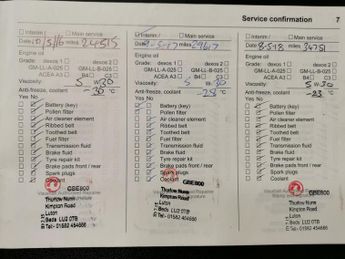 Service confirmation 7
Interim / Main service
miles 24515
Engine oil
Grade: dexos 1 dexos 2
GM-LL-A-025 GM-LL-B-025
ACEA A3 B4 C3
Viscosity 5 W 30
Anti-freeze, coolant -30 °C
Yes No
Battery (key)
Pollen filter
Air cleaner element
Ribbed belt
Toothed belt
Fuel filter
Transmission fluid
Brake fluid
Tyre repair kit
Brake pads front / rear
Spark plugs
Coolant
GBE800
Thurlow Nunn
Kimpton Road
Luton
Beds LU2 0TB
Tel - 01582 454666
Interim / Main service
-5-17 miles 29617
Engine oil
Grade: dexos 1 dexos 2
GM-LL-A-025 GM-LL-B-025
ACEA A3 B4 C3
Viscosity 5 W 30
Anti-freeze, coolant -25 °C
Yes No
Battery (key)
Pollen filter
Air cleaner element
Ribbed belt
Toothed belt
Fuel filter
Transmission fluid
Brake fluid
Tyre repair kit
Brake pads front / rear
Spark plugs
Coolant
GBE800
Thurlow Nunn
Kimpton Road
Luton
Beds LU2 0TB
Tel - 01582 454666
Interim / Main service
Date 8-5-18 miles 34751
Engine oil
Grade: dexos 1 dexos 2
GM-LL-A-025 GM-LL-B-025
ACEA A3 B4 C3
Viscosity 5 W 30
Anti-freeze, coolant -23 °C
Yes No
Battery (key)
Pollen filter
Air cleaner element
Ribbed belt
Toothed belt
Fuel filter
Transmission fluid
Brake fluid
Tyre repair kit
Brake pads front / rear
Spark plugs
Coolant
GBE800
Thurlow Nunn
Kimpton Road
Luton
Beds LU2 0TB
Tel - 01582 454666